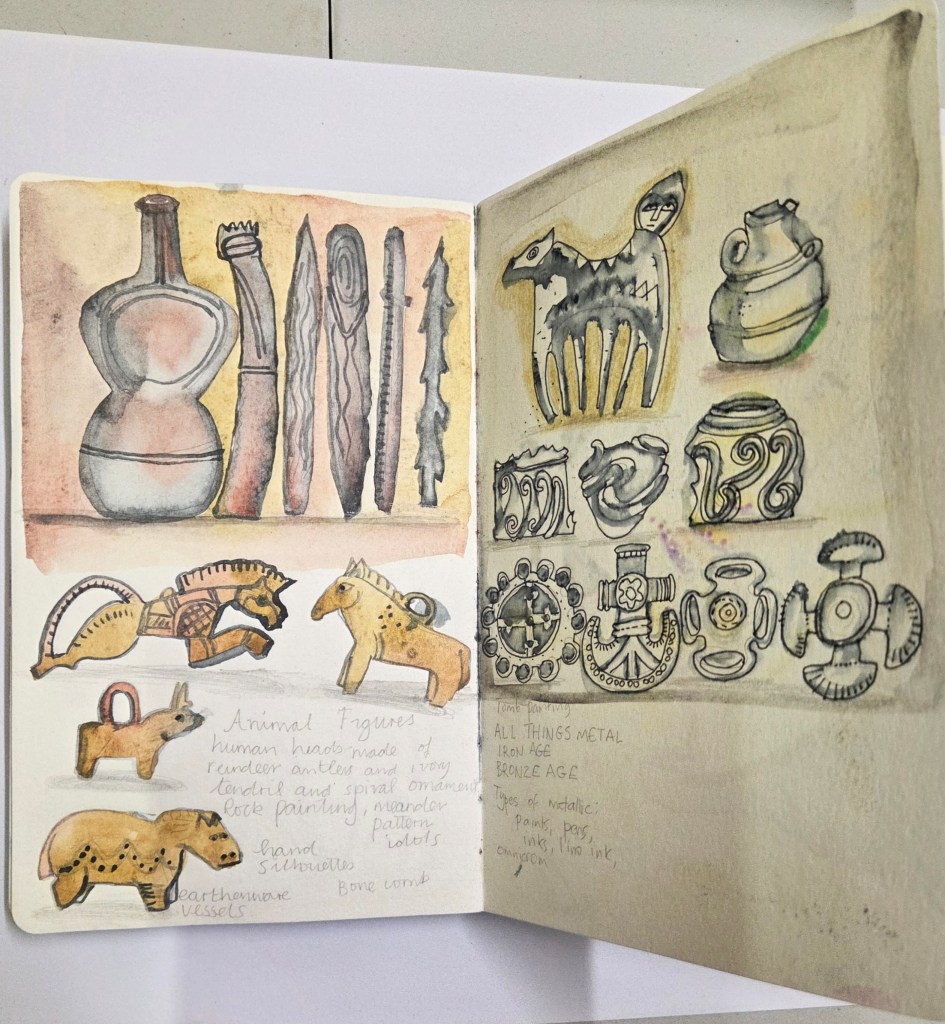 Animal Figures
human heads made of
reindeer antlers and ivory
tendril and spiral ornament
Rock painting, meander
pattern
idols
hand
silhouettes
earthenware
vessels
Bone comb
Tomb painting
ALL THINGS METAL
IRON AGE
BRONZE AGE
Types of metallic:
paints, pens,
inks, line ink,